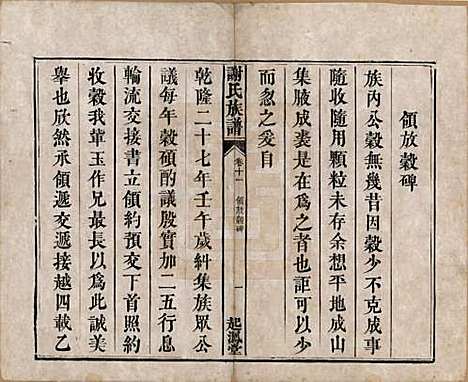 領放穀碑
族內公穀無幾昔因穀少不克成事
隨收隨用顆粒未存余想平地成山
集腋成裘是在爲之者也詎可以少
而忽之爰自
謝氏族譜
卷十一
領放穀碑
一
起鳳堂
乾隆二十七年壬午歲糾集族眾公
議每年穀碩酌議殷實加二五行息
輪流交接書立領約預交下首照約
收穀我華玉作兄最長以爲此誠美
舉也欣然承領遞交遞接越四載乙